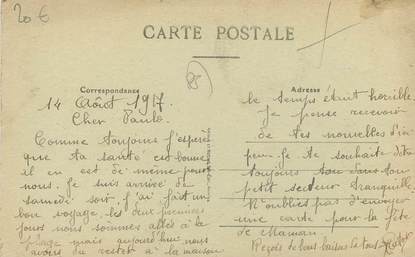 20 €
CARTE POSTALE
85
Correspondance
14 Août 1917.
Cher Paulo.
Comme toujours j'espère
que ta santé est bonne
il en est de même pour
nous. Je suis arrivé de
samedi soir. j'ai fait un
bon voyage, les deux premiers
jours nous sommes allés à la
plage mais aujourd'hui nous
avons du rester à la maison
Adresse
le temps étant horrible.
Je pense recevoir
de tes nouvelles d'ici
peu. Je te souhaite d'être
toujours dans ton
petit secteur tranquille
N'oublies pas d'envoyer
une carte pour la fête
de Maman.
Reçois de tous baisers